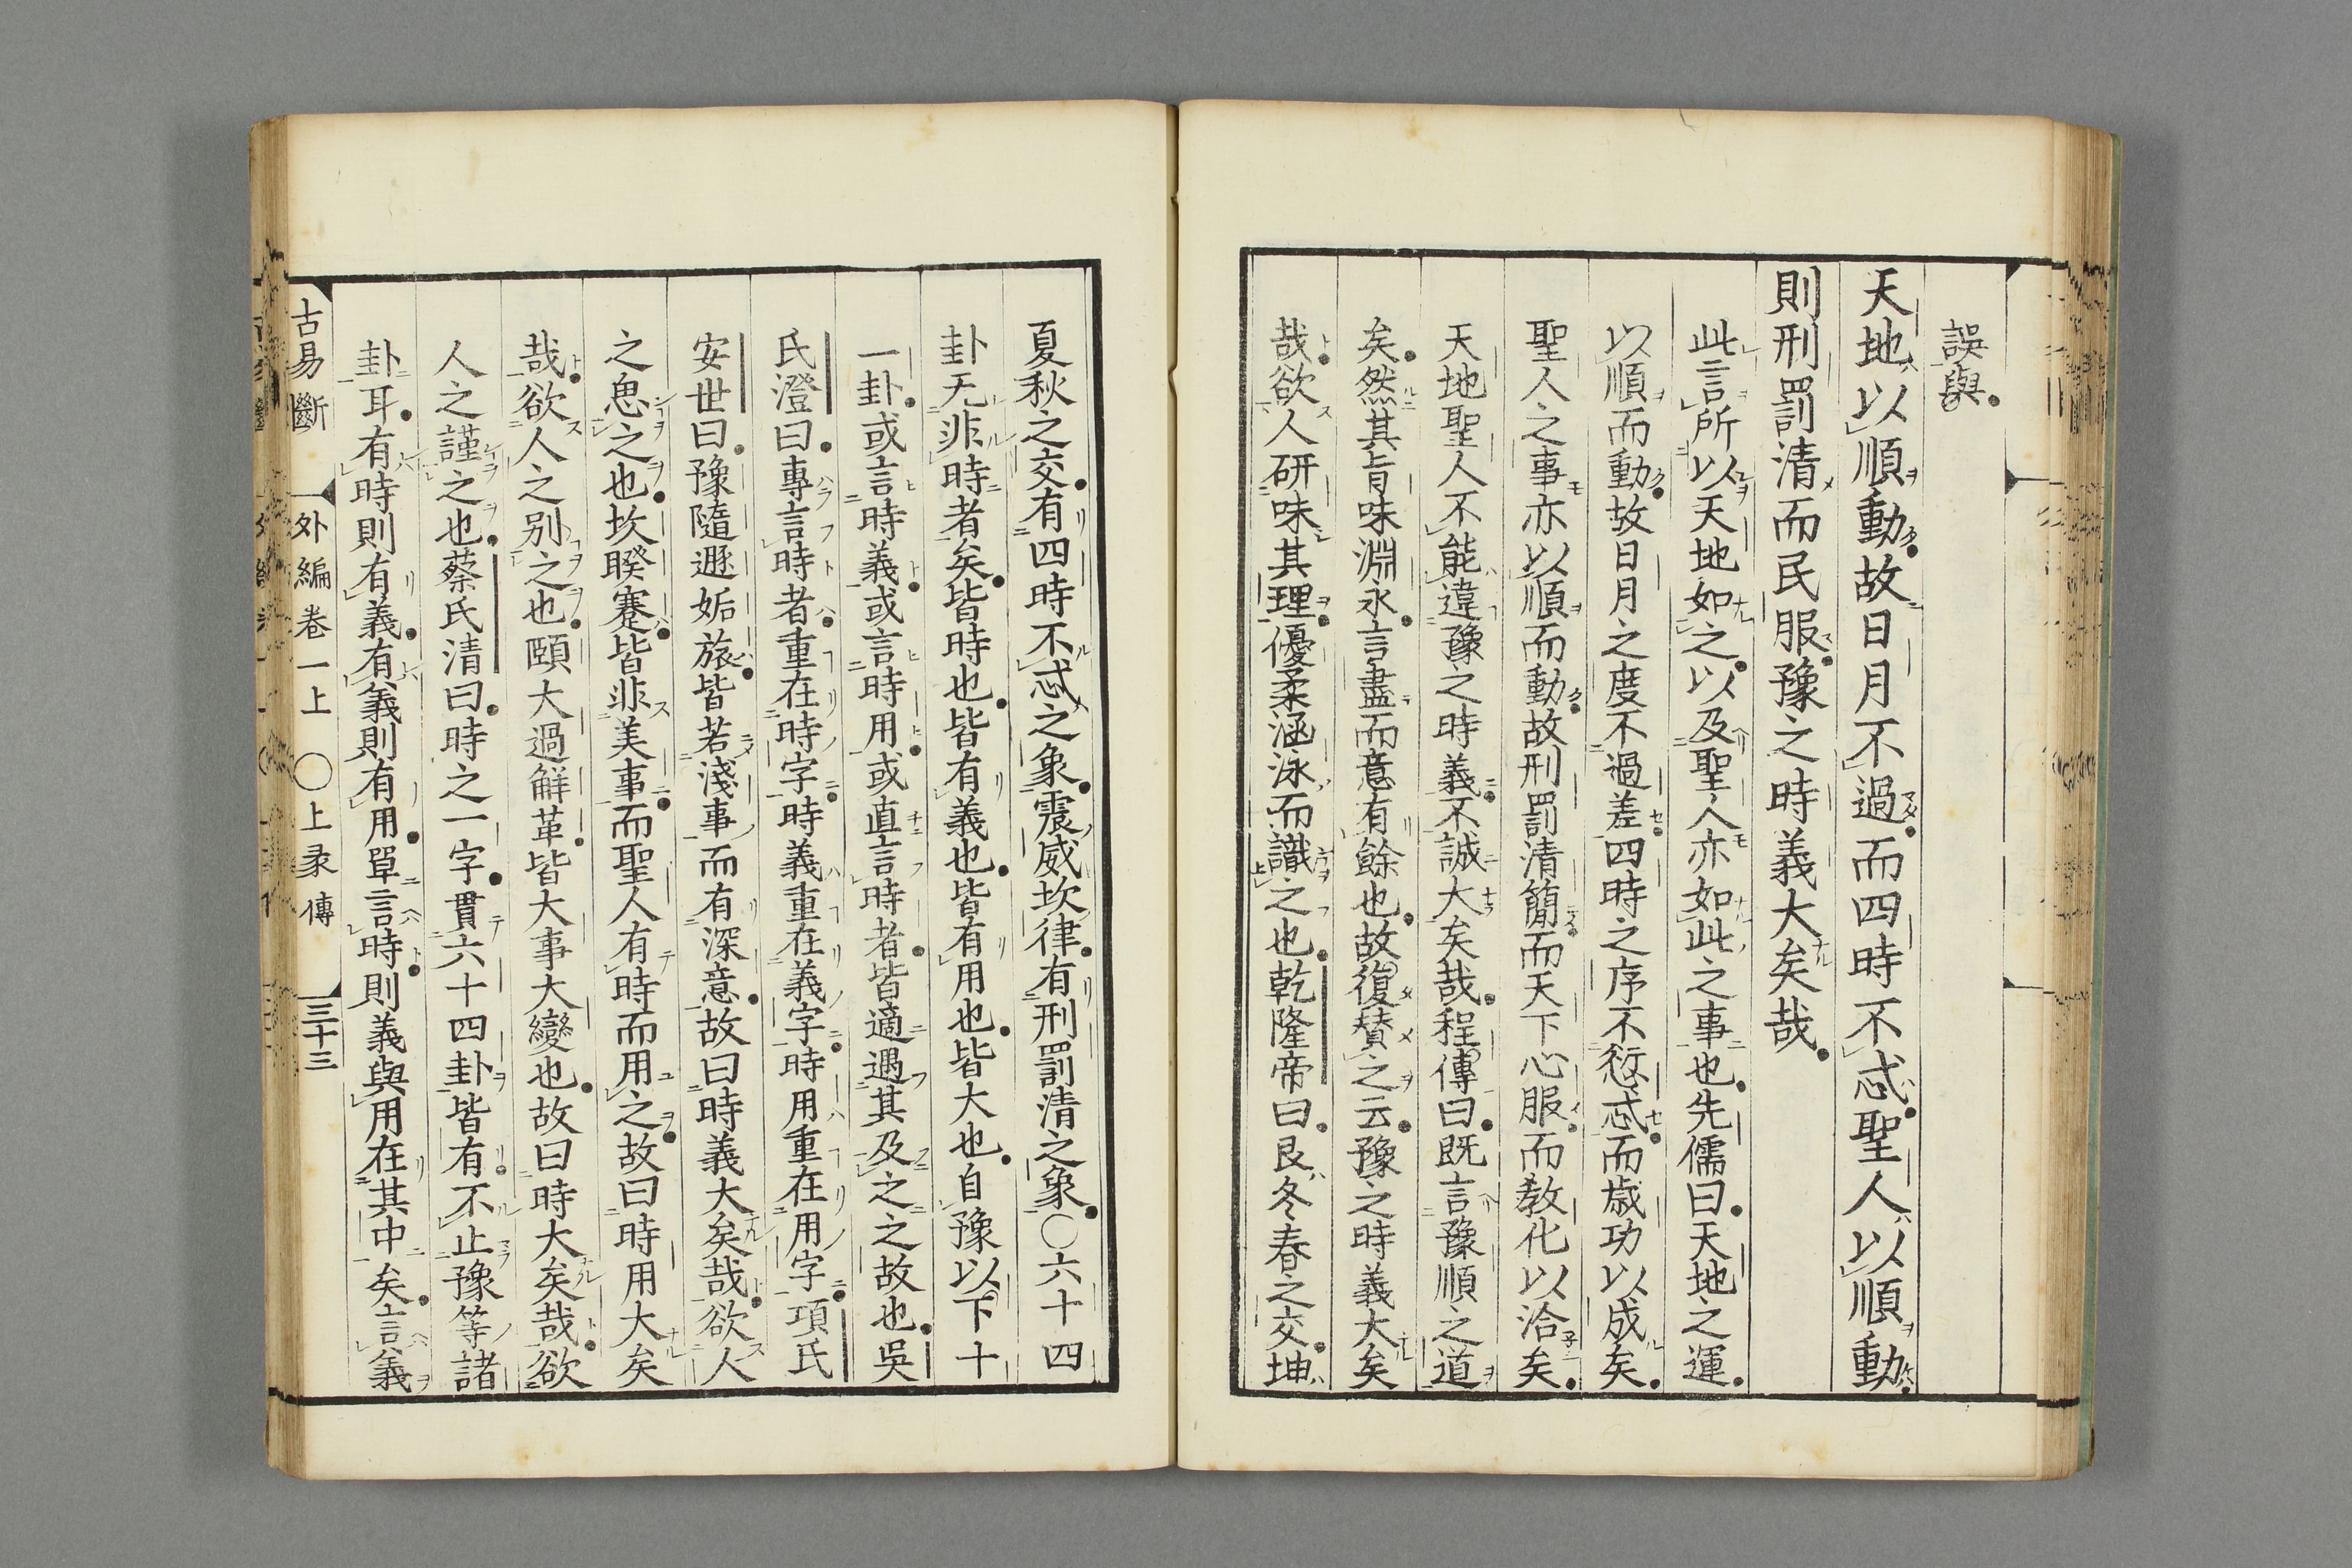 誤與
天地以順動故日月不過而四時不忒聖人以順動
則刑罰清而民服豫之時義大矣哉
此言所以天地如之以及聖人亦如此之事也先儒曰天地之運
以順而動故日月之度不過差四時之序不愆忒而歳功以成矣
聖人之事亦以順而動故刑罰清簡而天下心服而教化以洽矣
天地聖人不能違豫之時義不誠大矣哉程傳曰既言豫順之道
矣然其旨味淵永言盡而意有餘也故復賛之云豫之時義大矣
哉欲人研味其理優柔涵泳而識之也乾隆帝曰艮冬春之交坤
夏秋之交有四時不忒之象震威坎律有刑罰清之象〇六十四
卦无非時者矣皆時也皆有義也皆有用也皆大也自豫以下十
一卦或言時義或言時用或直言時者皆適遇其及之之故也吳
氏澄曰專言時者重在時字時義重在義字時用重在用字項氏
安世曰豫隨遯姤旅皆若淺事而有深意故曰時義大矣哉欲人
之思之也坎睽蹇皆非美事而聖人有時而用之故曰時用大矣
哉欲人之別之也頤大過解革皆大事大變也故曰時大矣哉欲
人之謹之也蔡氏清曰時之一字貫六十四卦皆有不止豫等諸
卦耳有時則有義有義則有用單言時則義與用在其中矣言義
古易斷 外編卷一上 〇上彖傳 三十三